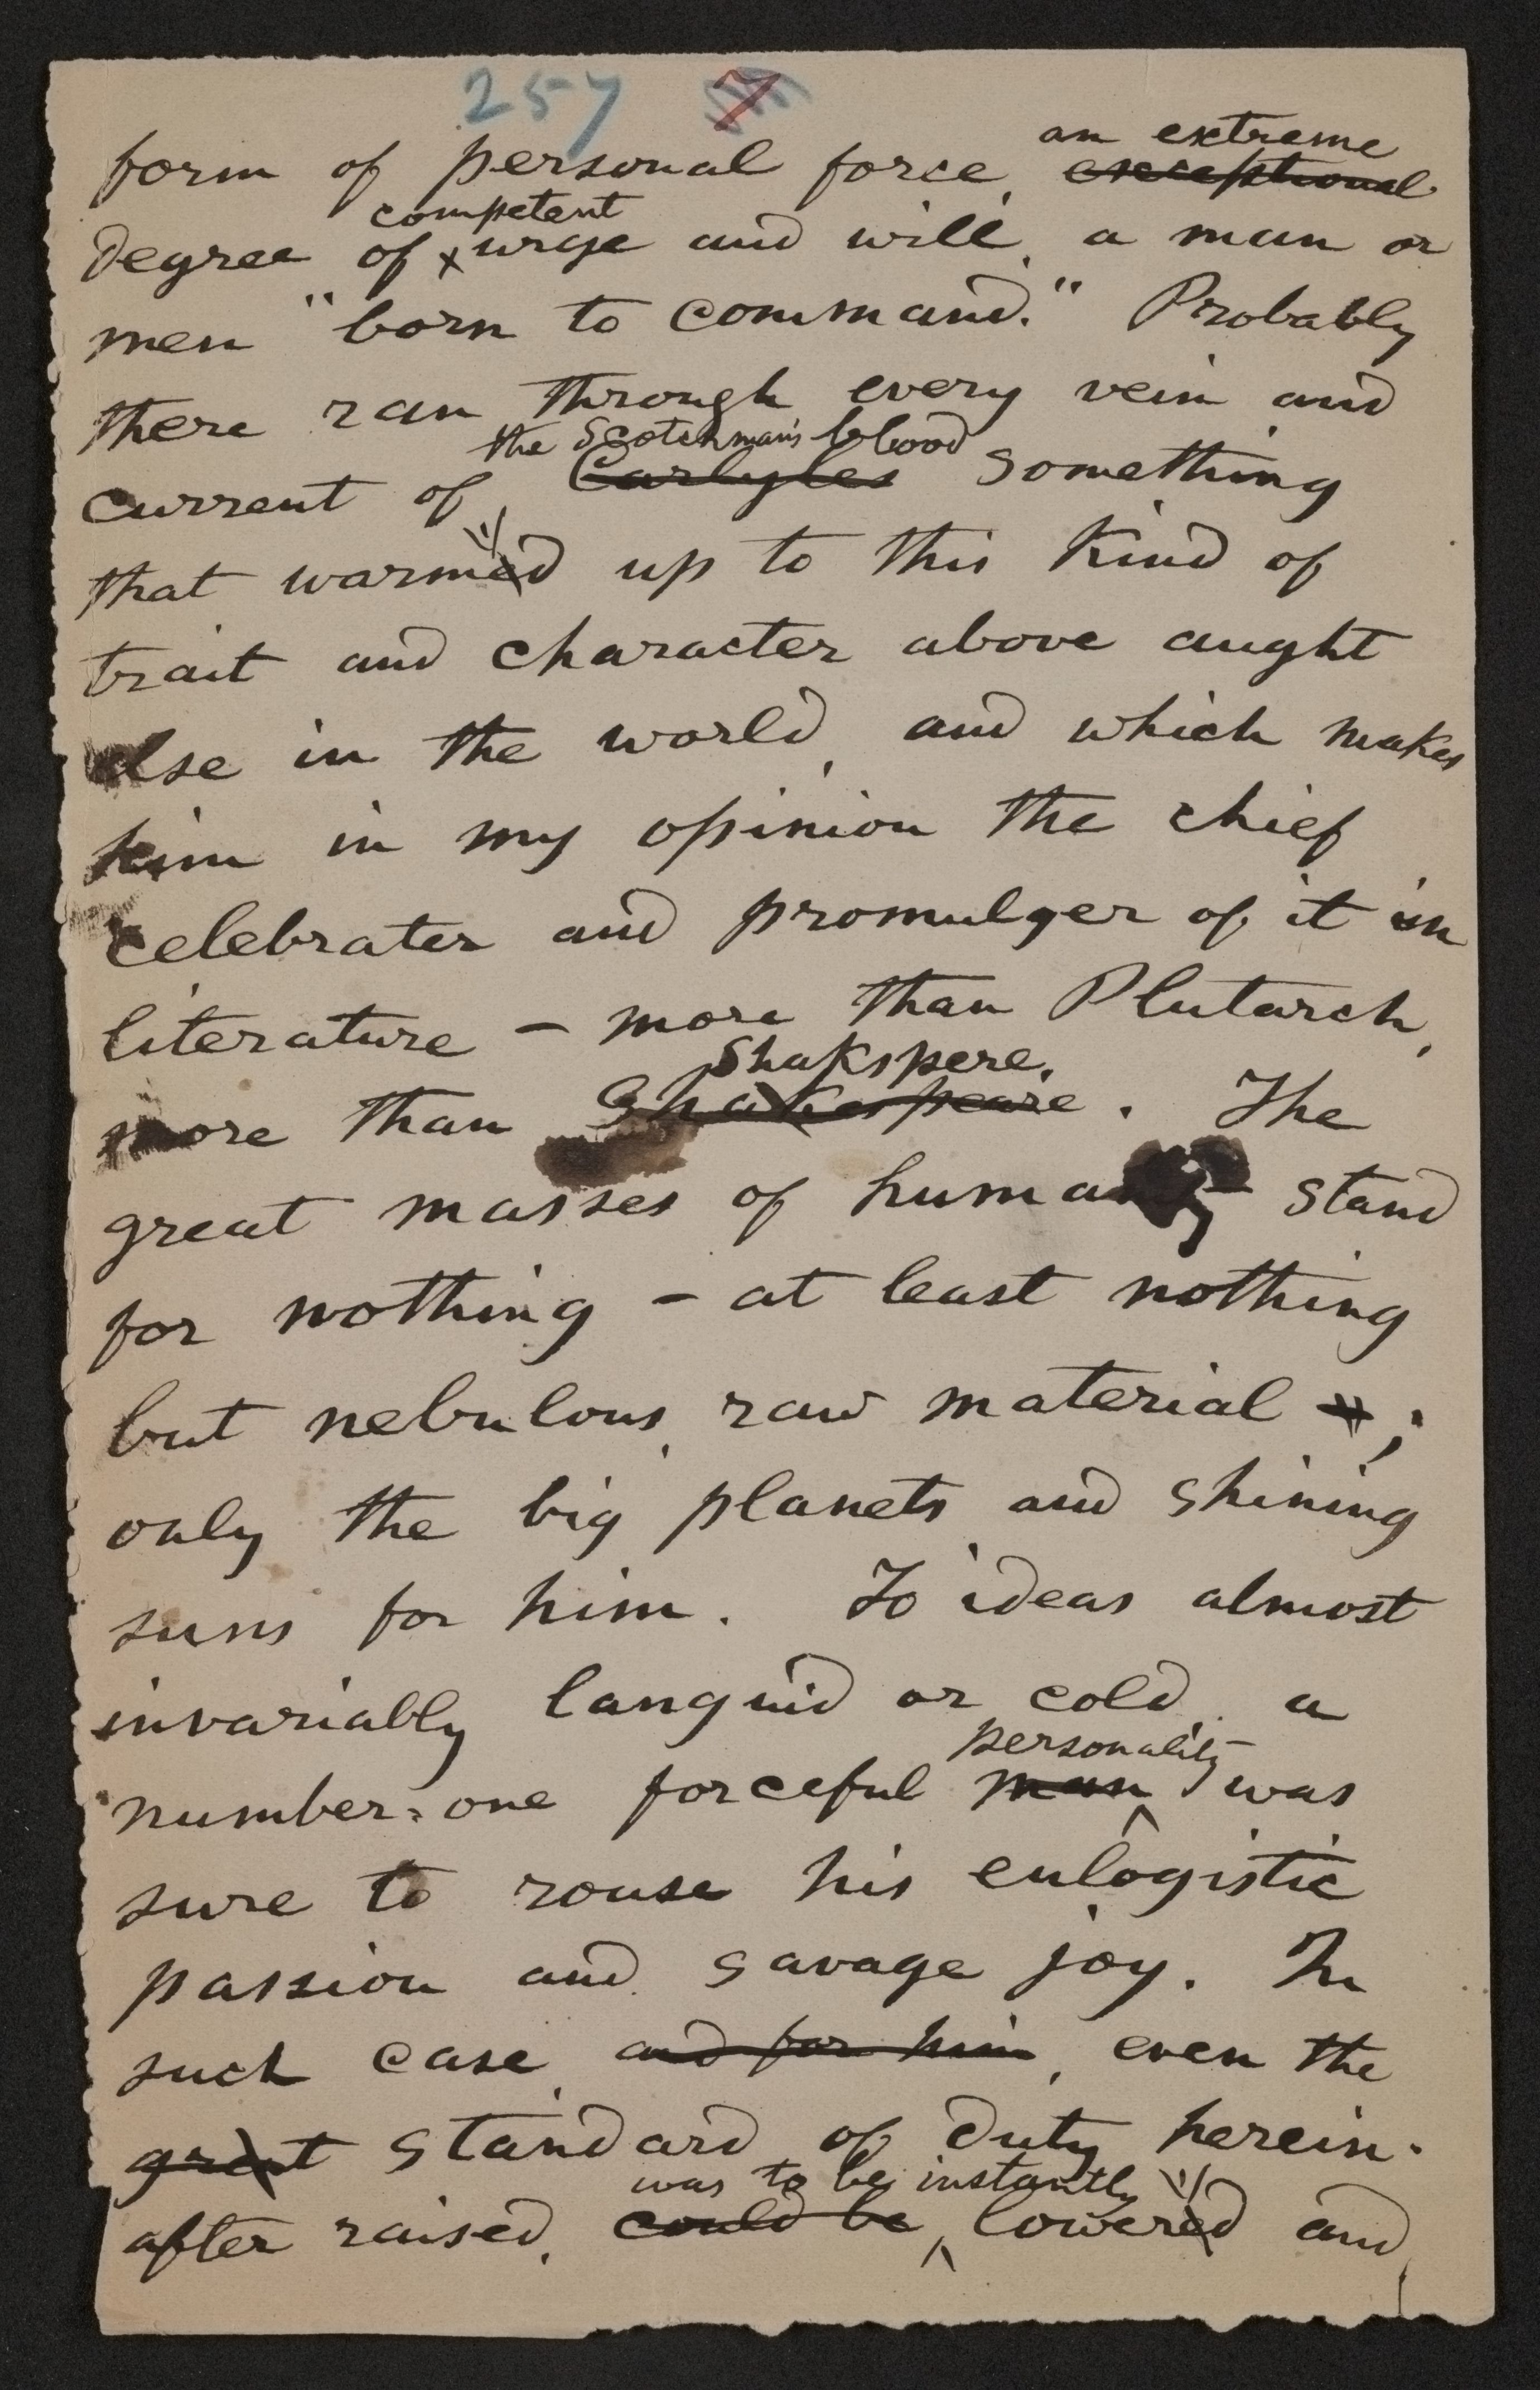 257 7
an extreme
form of personal force, exceptional
competent
degree of x urge and will, a man or
men "born to command." Probably
there ran through every vein and
the Scotchman's blood
current of Carlyles something
that warm'd up to this kind of
trait and character above aught
else in the world, and which makes
him in my opinion the chief
celebrater and promulger of it in
literature – more than Plutarch,
Shakspere.
more than Shakespeare. The
great masses of humanity stand
for nothing – at least nothing
but nebulous, raw material ;
only the big planets and shining
suns for him. To ideas almost
invariably languid or cold, a
personality
number-one forceful man was
sure to rouse his eulogistic
passion and savage joy. In
such case, and for him, even the
great standard of duty herein-
was to be instantly
after raised, could be, lower'd and